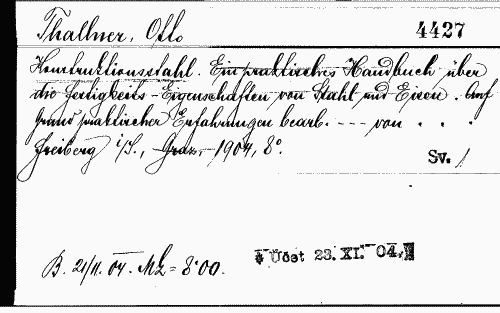 Thallner, Otto 4427
Konstruktionsstahl. Ein praktisches Handbuch über
die Festigkeits-Eigenschaften von Stahl und Eisen. Auf
Grund praktischer Erfahrungen bearb. --- von . . .
Freiberg i/S., Graz, 1904, 8°.
Sv. /
B. 21/11. 04. Mk = 8.00.
Účet 23. XI. 04.